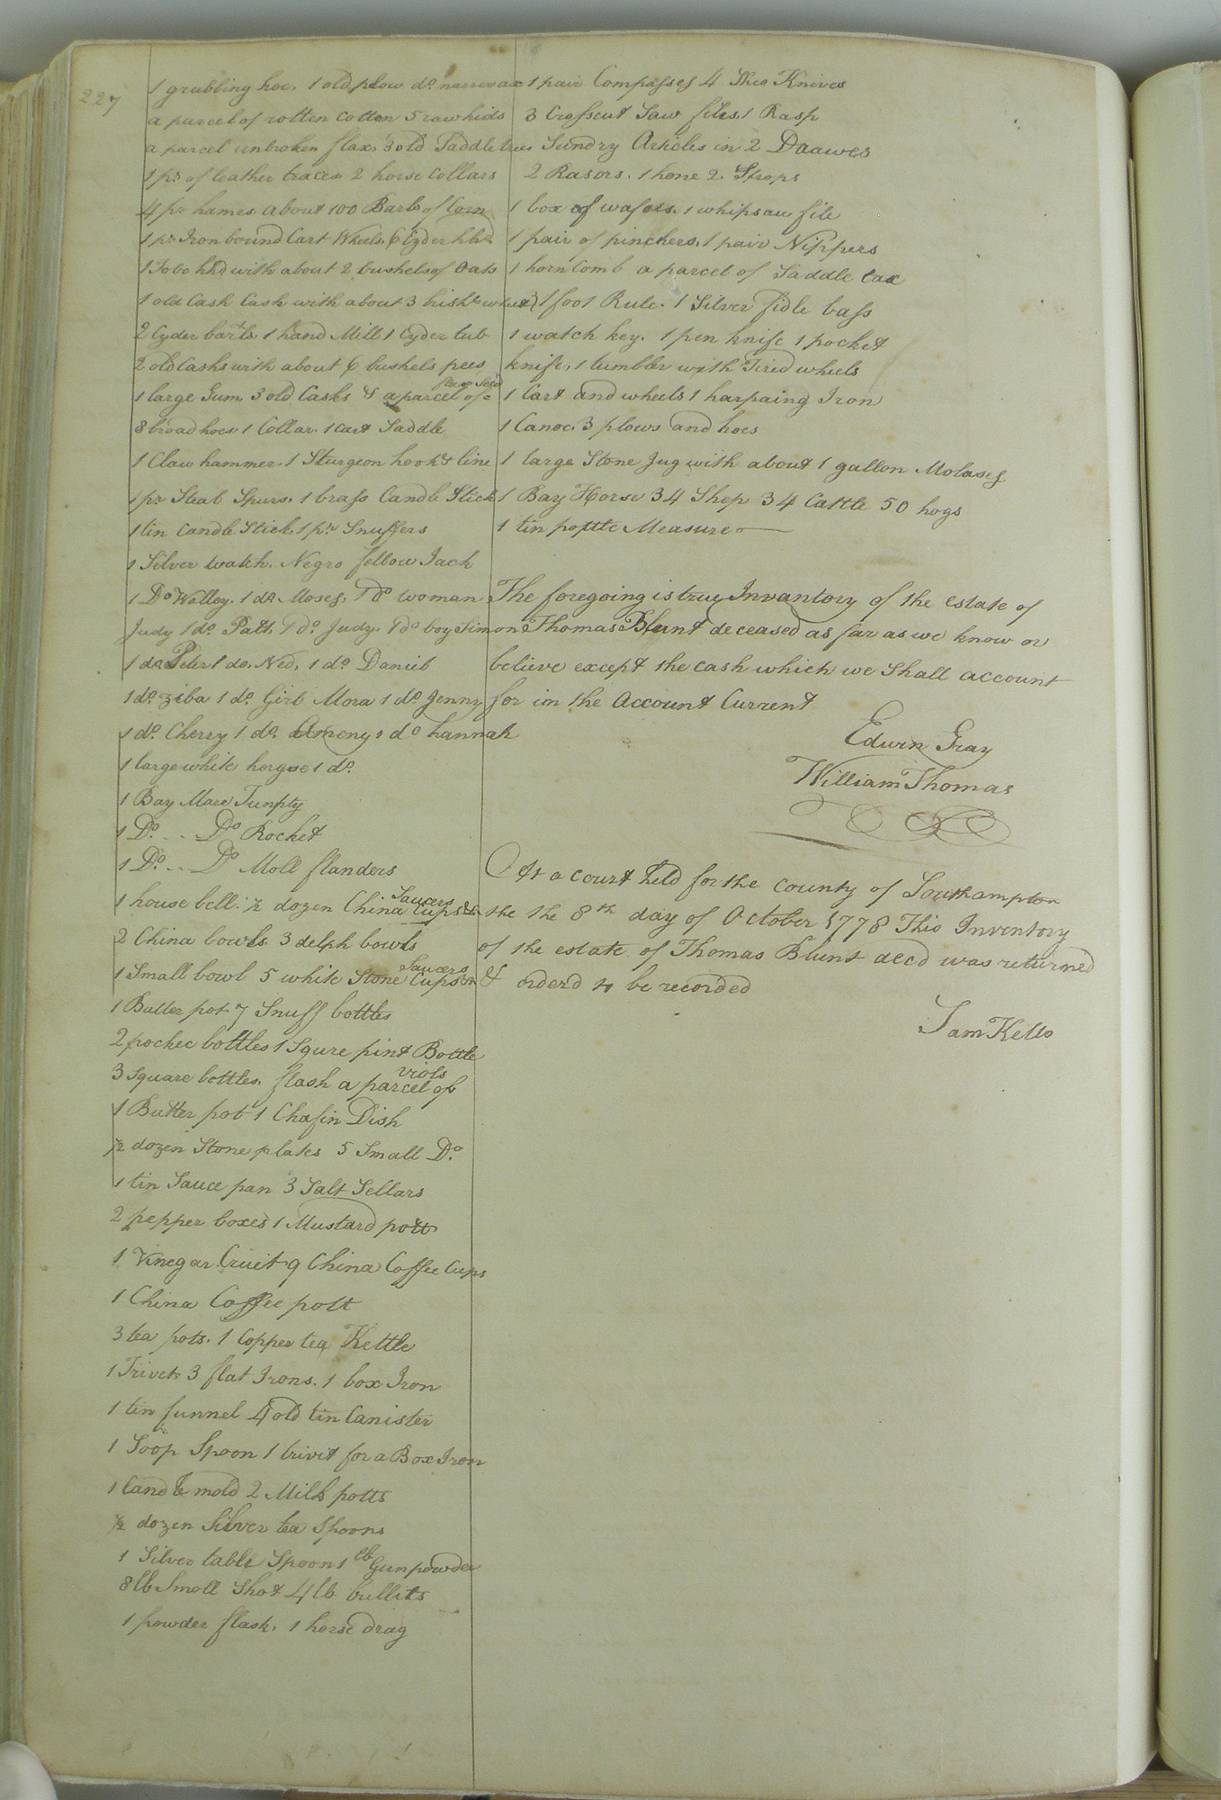 227
1 grubbing hoe. 1 old plow do. narrow ax
a parcel of rotten Cotton 5 rawhids
a parcel unbroken flax. 3 old Saddle trees
1 pr. of leather traces 2 horse Collars
4 pr hames. about 100 Barls of Corn
1 pr Iron bound Cart Wheels. 6 Cyder hhd
1 Tobo hhd with about 2 bushels of Oats
1 old Cask Cask with about 3 bishls wheat
2 Cyder barls 1 hand Mill 1 Cyder tub
2 old Casks with about 6 bushels pees
1 large Gum 3 old Casks & a parcel of flax Seed
8 broad hoes 1 Collar. 1 Cart Saddle
1 Claw hammer. 1 Sturgeon hook & line
1 pr Steal Spurs. 1 brass Candle Stick
1 tin Candle Stick, 1 pr. Snuffers
1 Silver watch. Negro fellow Jack
1 Do Walley. 1 do. Moses, 1 do woman
Judy 1 do. Patt, 1 do. Judy. 1 do boy Simon
1 do. Peter 1 do. Ned, 1 do Daniel
1 do. Ziba 1 do. Girl Mora 1 do. Jenny
1 do. Cherry 1 do. Ameny 1 do hannah
1 large white horgse 1 do.
1 Bay Mare Tunpty
1 Do. -- Do Rocket
1 Do. -- Do Moll flanders
1 house bell. ½ dozen China Cups & Saucers
2 China bowls 3 delph bowls
1 Small bowl 5 white Stone Cups & Saucers
1 Butter pot 7 Snuff bottles
2 pockec bottles 1 Squre pint Bottle
3 Square bottles. flash a parcel of viols
1 Butter pot 1 Chafin Dish
½ dozen Stone plates 5 Small Do.
1 tin Sauce pan 3 Salt Sellars
2 pepper boxes 1 Mustard pott
1 Vinegar Cruit 9 China Coffee Cups
1 China Coffee pott
3 tea pots. 1 Copper tea Kettle
1 Trivet 3 flat Irons. 1 box Iron
1 tin funnel 4 old tin Canister
1 Soop Spoon 1 trivit for a Box Iron
1 Candle mold 2 Milk potts
½ dozen Silver tea Spoons
1 Silver table Spoon 1 lb Gunpowder
8 lb Smoll Shot 4 lb bullits
1 powder flask. 1 horse drag
1 pair Compasses 4 Shoo Knives
3 Crosscut Saw files 1 Rasp
Sundry Articles in 2 Daawes
2 Rasors. 1 hone 2. Strops
1 box of wafers. 1 whipsaw file
1 pair of pinchers. 1 pair Nippers
1 horn Comb a parcel of Saddle
1 foot Rule. 1 Silver fidle bass
1 watch key. 1 pen knife 1 pocket
knife, 1 tumbler with Tired wheels
1 Cart and wheels 1 harpaing Iron
1 Canoe. 3 plows and hoes
1 large Stone Jug with about 1 gallon Molases
1 Bay Horse 34 Shep 34 Cattle 50 hogs
1 tin pottle Measure
The foregoing is true Invantory of the estate of
Thomas Blunt deceased as far as we know or
believe except the cash which we Shall account
for in the Account Current
Edwin Gray
William Thomas
At a court held for the county of Southampton
the the 8th day of October 1778 This Inventory
of the estate of Thomas Blunt decd was returned
& orderd to be recorded
Sam Kello